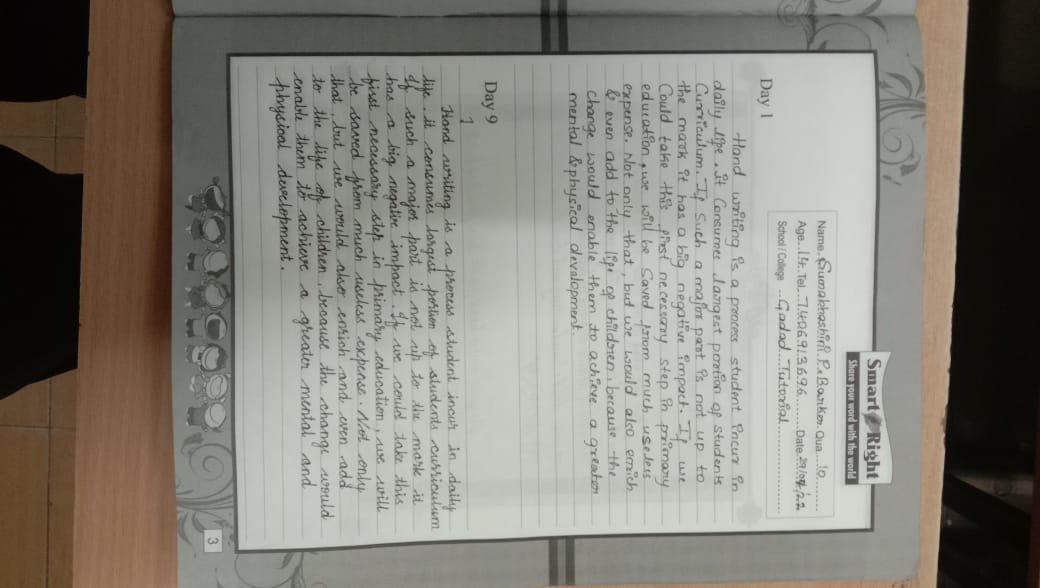 Smart Right
Share your word with the world
Name. Sumabhashini. P. Barker. Qua....10
Age..14. Tel..7406913696........Date.29/04/22
School / College ...Gadad...Tutorial
Day 1
Hand writing is a process student incur in
daily life. it Consumes largest portion of students
Curriculum. If Such a major part is not up to
the mark it has a big negative impact. If we
Could take this first necessary step in primary
education, we will be Saved from much useless
expense. Not only that, but we would also enrich
& even add to the life of children, because the
change would enable them to achieve a greater
mental & physical development.
Day 9
1
Hand writing is a process student incur in daily
life. it consumes largest portion of students curriculum
If such a major part is not up to the mark it
has a big negative impact. If we could take this
first necessary step in primary education, we will
be saved from much useless expense. Not only
that, but we would also enrich and even add
to the life of children, because the change would
enable them to achieve a greater mental and
physical development.
3